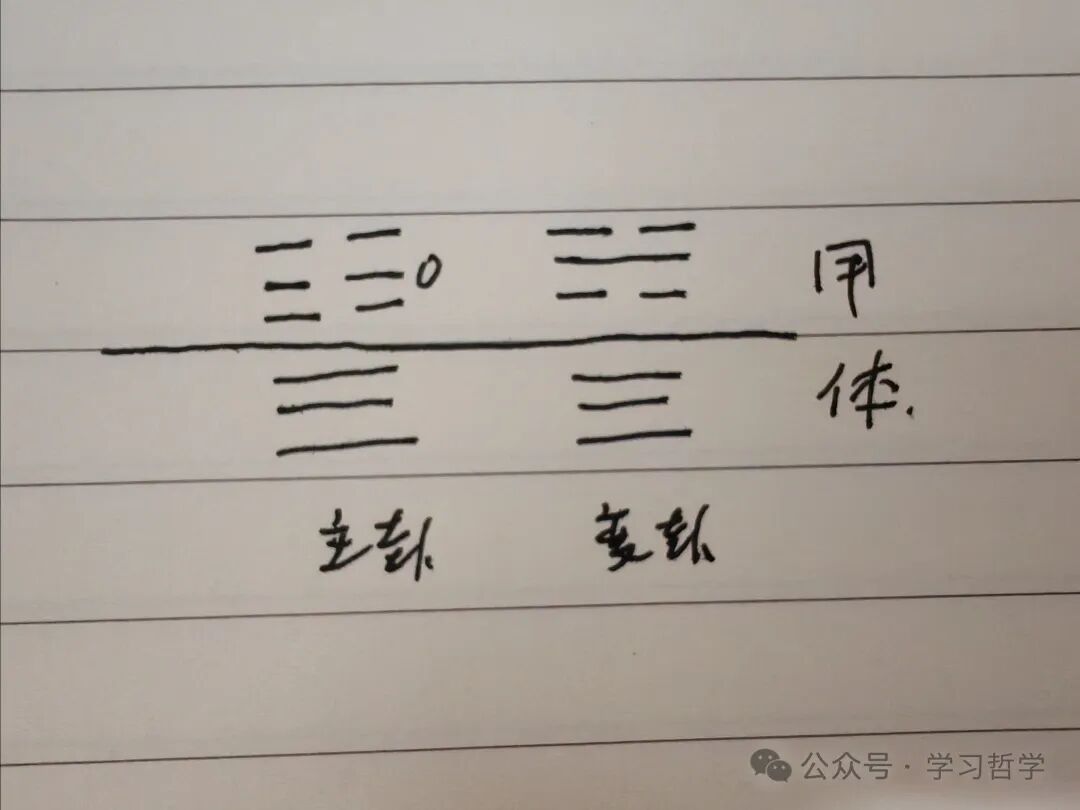 用
体.
主卦 变卦
公众号 · 学习哲学